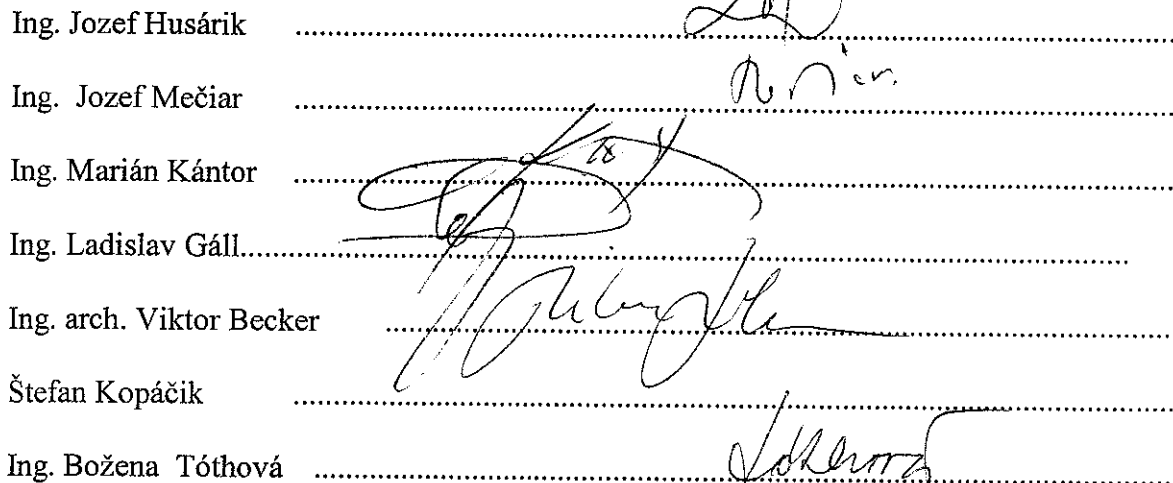 Ing. Jozef Husárik ..........
Ing. Jozef Mečiar ..........
Ing. Marián Kántor ..........
Ing. Ladislav Gáll..........
Ing. arch. Viktor Becker ..........
Štefan Kopáčik ..........
Ing. Božena Tóthová ..........